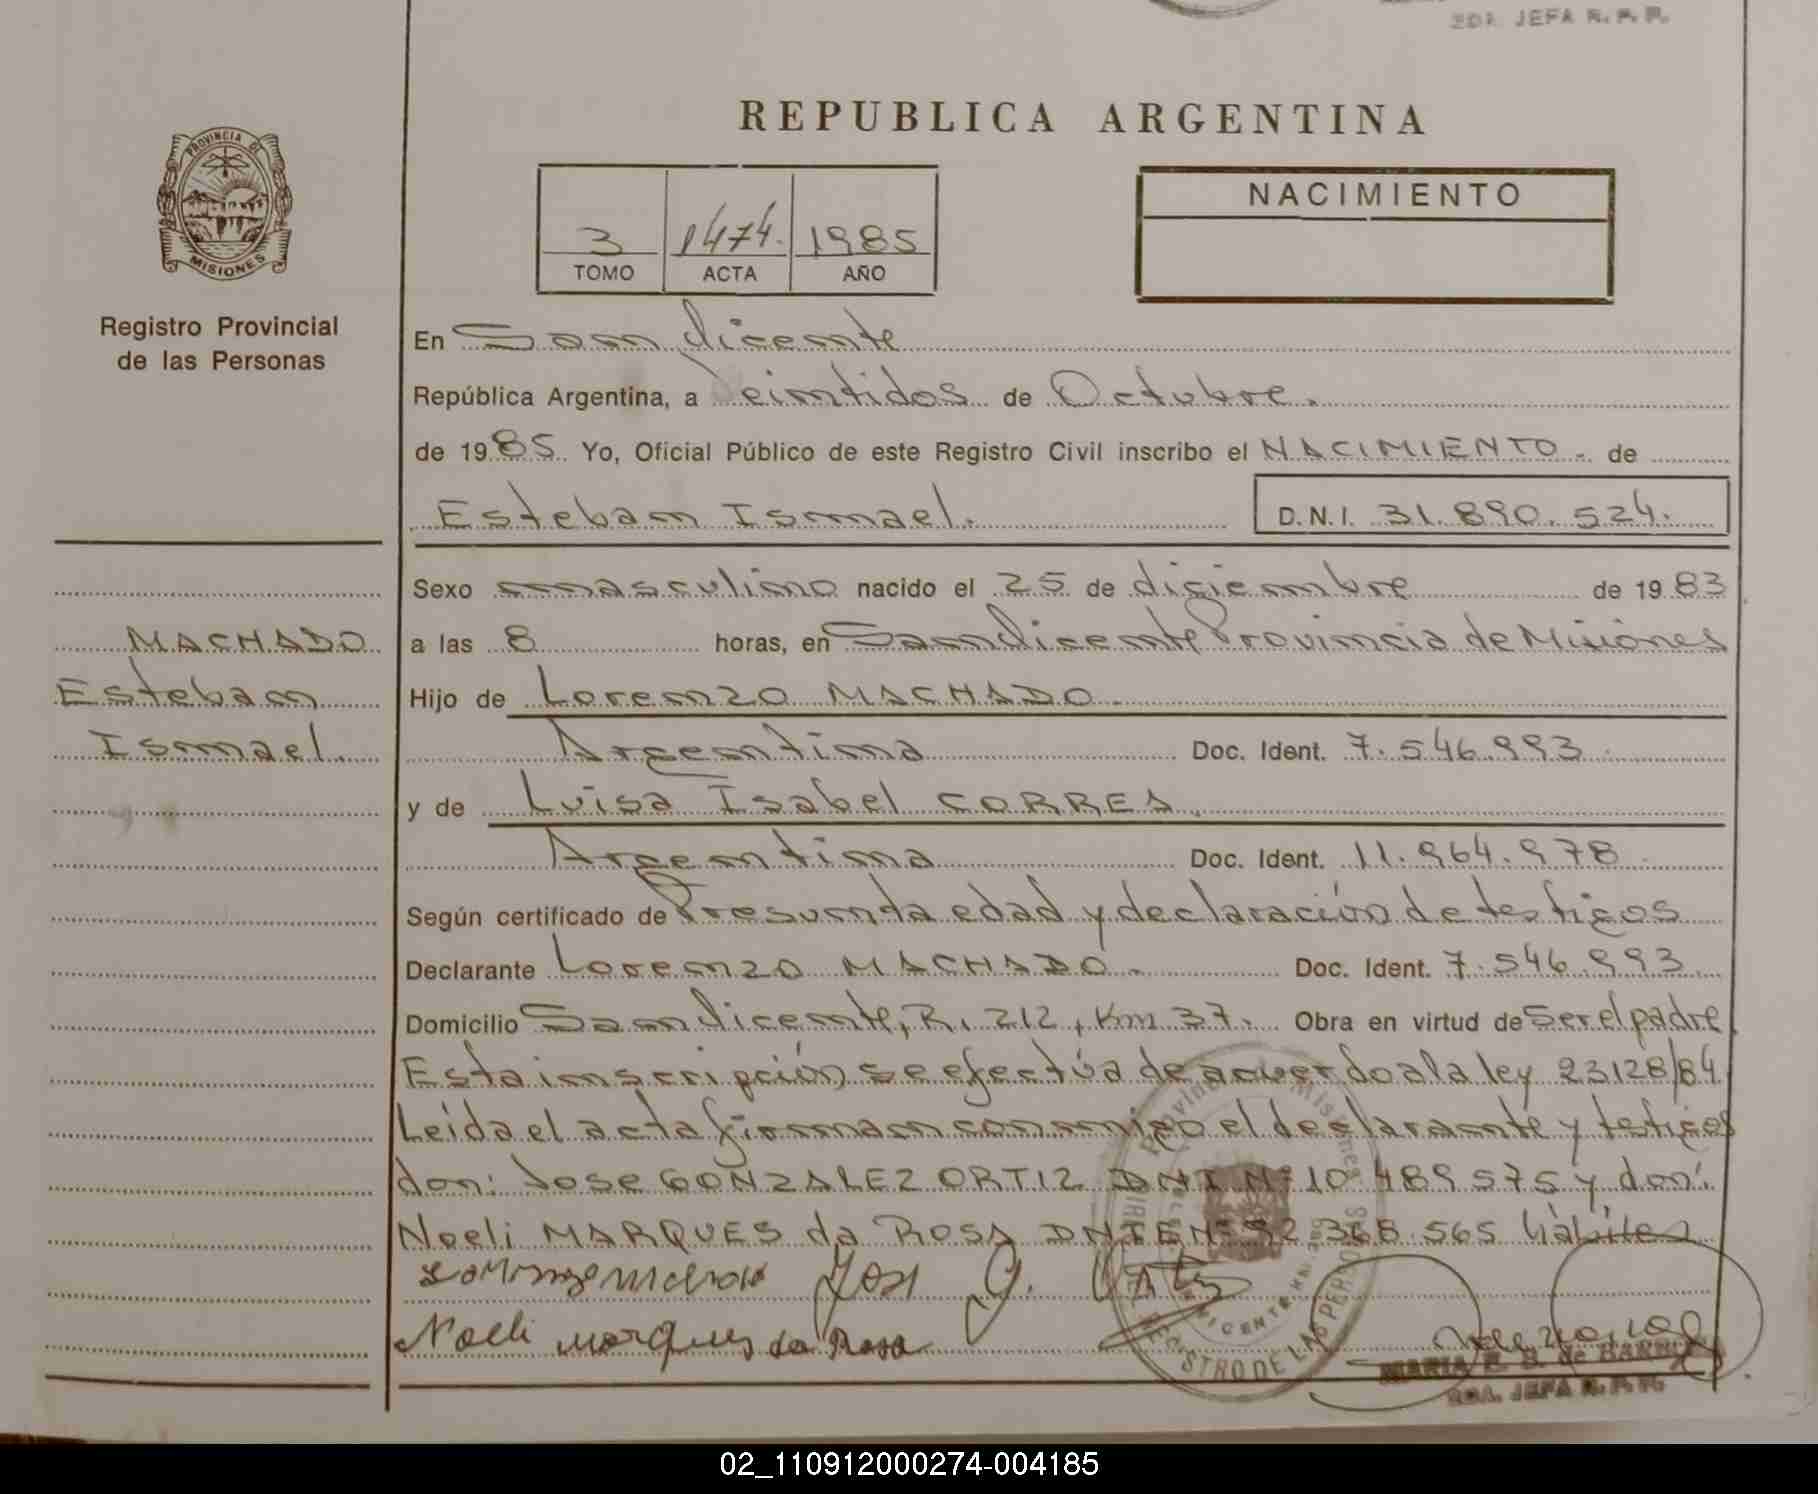 2DA. JEFA R. P. P.
REPUBLICA ARGENTINA
PROVINCIA DE
MISIONES
Registro Provincial
de las Personas
3 1474. 1985
TOMO ACTA AÑO
NACIMIENTO
En San Vicente
República Argentina, a Veintidos de Octubre.
de 1985 Yo, Oficial Público de este Registro Civil inscribo el NACIMIENTO. de
Esteban Ismael. D.N.I. 31.890.524.
Sexo masculino nacido el 25 de diciembre de 1983
MACHADO
a las 8 horas, en San Vicente Provincia de Misiones
Esteban
Hijo de Lorenzo MACHADO.
Ismael.
Argentina Doc. Ident. 7.546.993.
y de Luisa Isabel CORREA.
Argentina Doc. Ident. 11.964.978.
Según certificado de Presunta edad y declaración de testigos
Declarante Lorenzo MACHADO. Doc. Ident. 7.546.993
Domicilio San Vicente, R. 212, Km 37. Obra en virtud de Ser el padre.
Esta inscripción se efectúa de acuerdo a la ley 23128/84
Leída el acta firman conmigo el declarante y testigos
don: Jose GONZALEZ ORTIZ DNI Nº 10.489.575 y don:
Noeli MARQUES da ROSA DNIENº 92.368.565 hábiles
Jose G. Ortiz
Noeli Marques da Rosa
Provincia de Misiones
REGISTRO DE LAS PERSONAS
MARIA R. B. de
2DA. JEFA R. P. P.
02_110912000274-004185